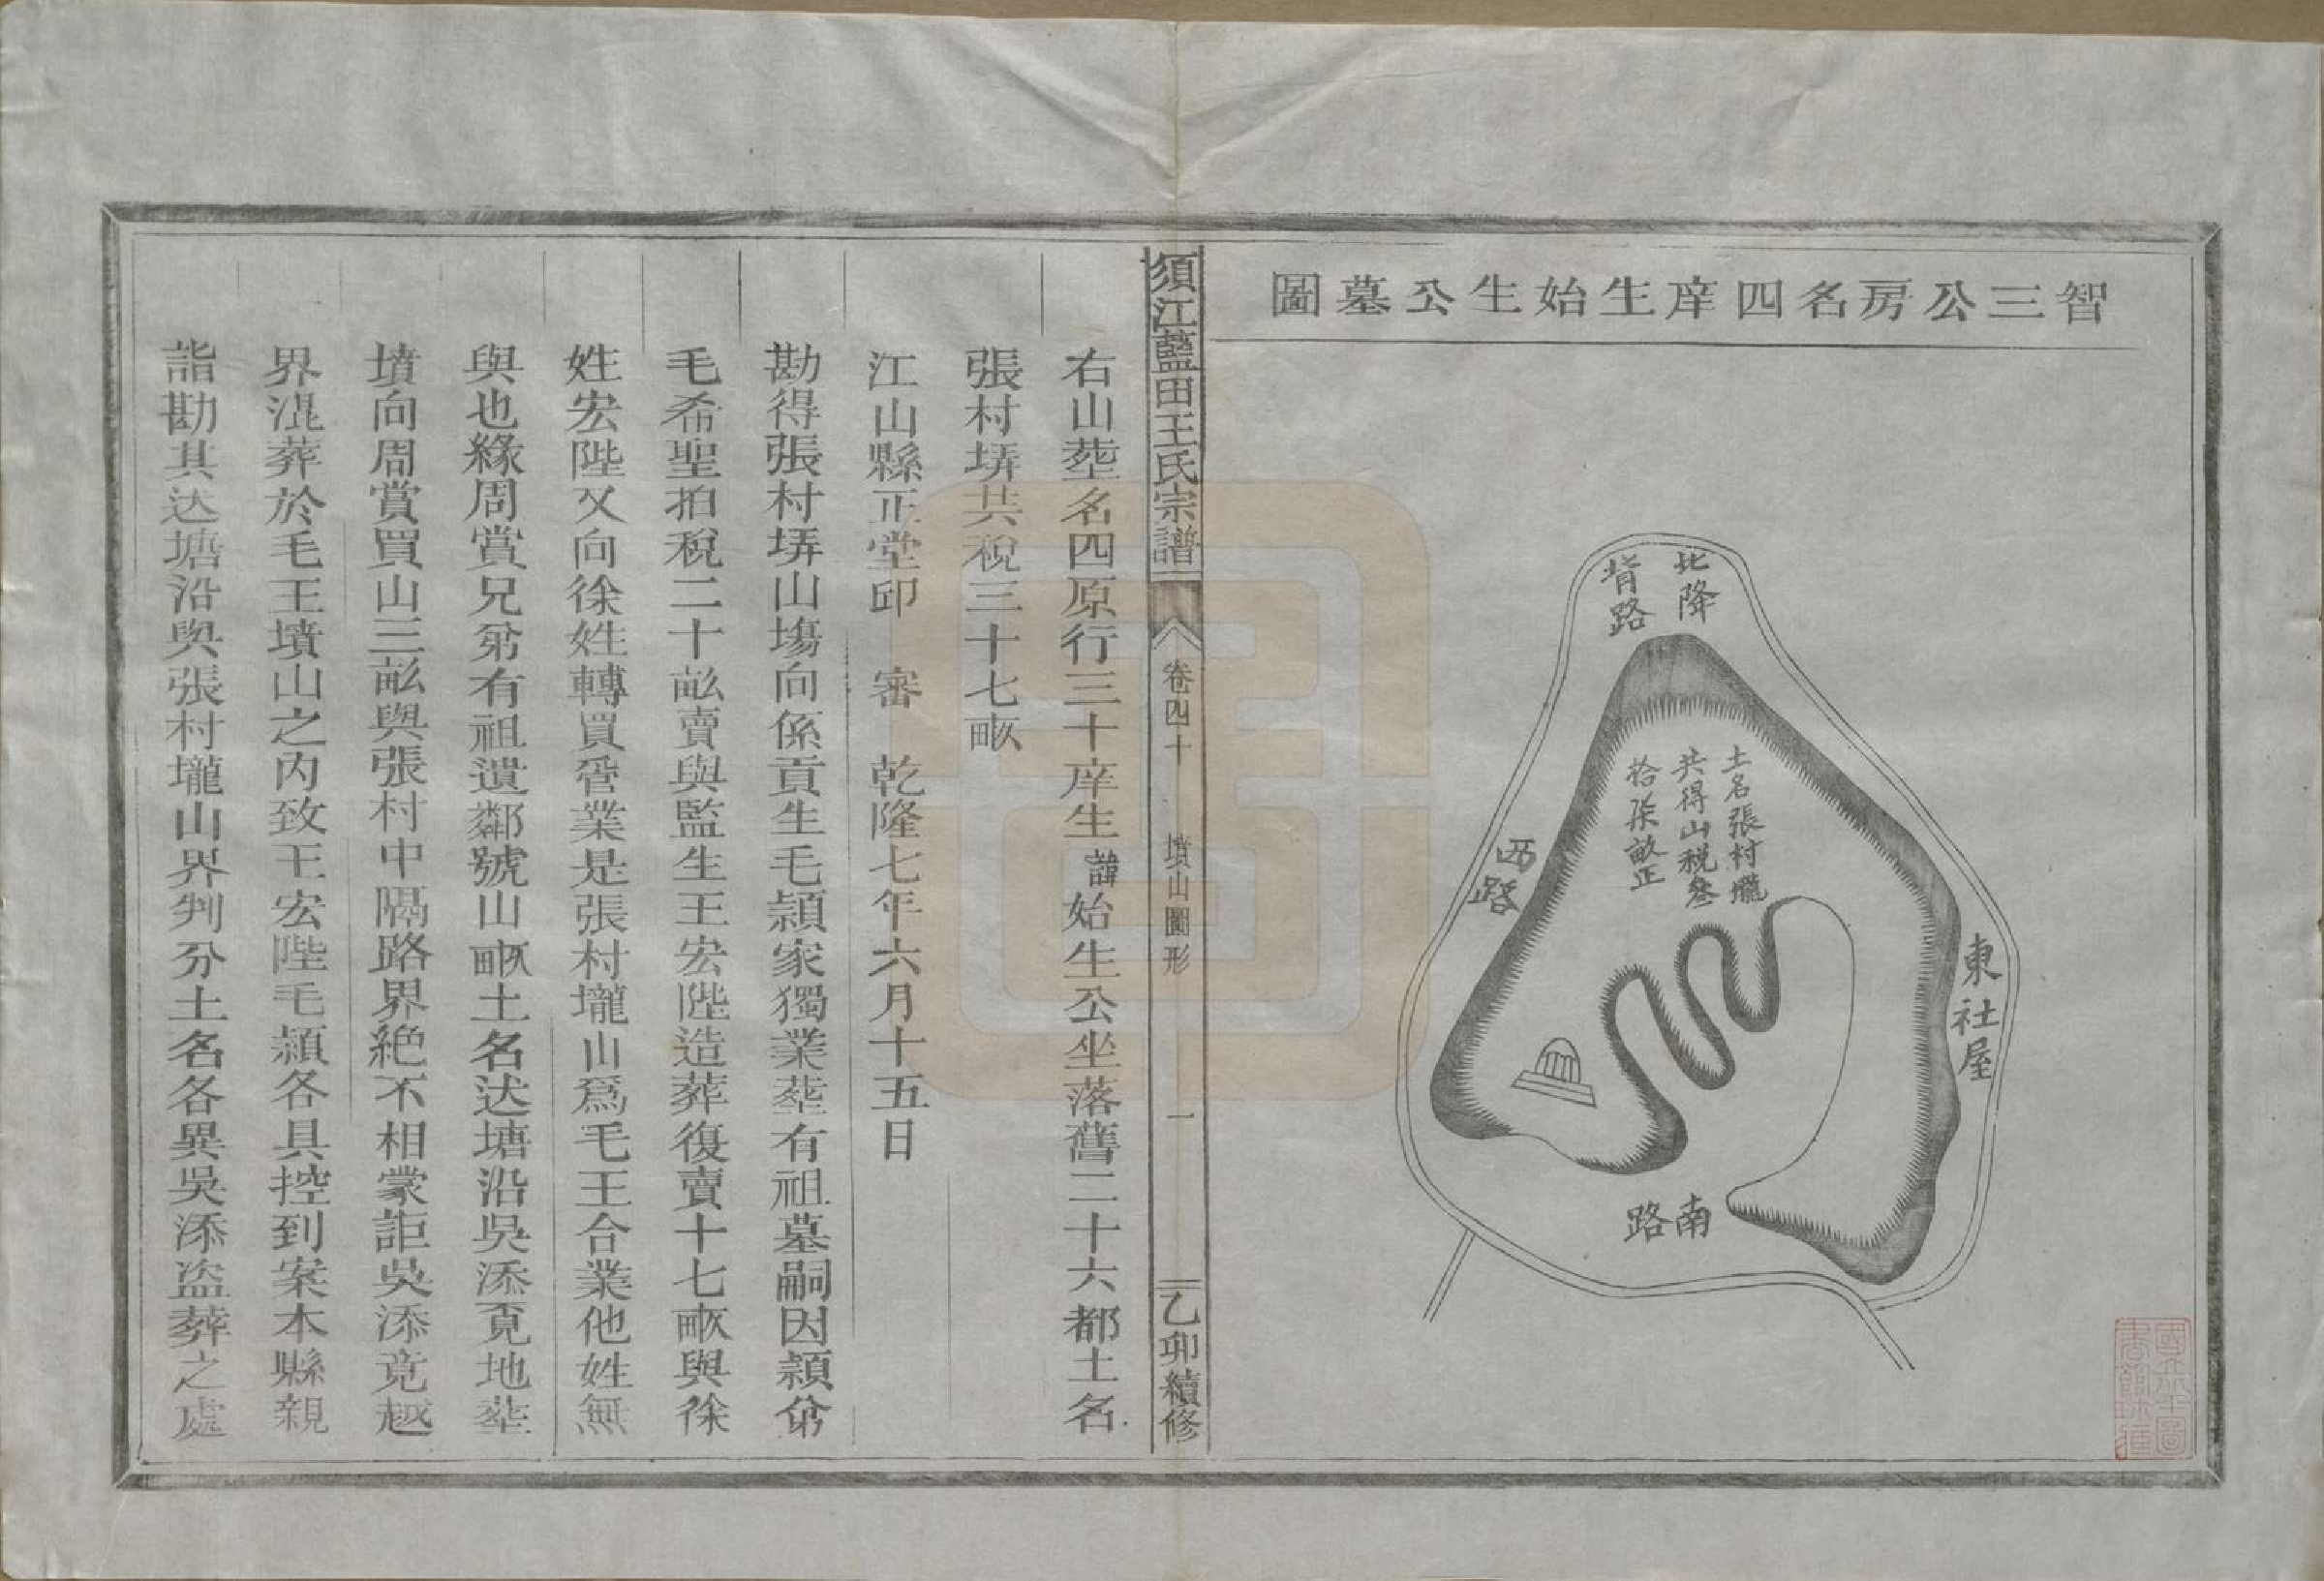 智三公房名四庠生始生公墓圖
北降
背路
土名張村壠
共得山税叄
拾柒畝正
西路
東社屋
南路
須江藍田王氏宗譜
卷四十 墳山圖形 一
乙卯續修
右山塟名四原行三十庠生諱始生公坐落舊二十六都土名
張村塝共稅三十七畞
江山縣正堂印 審 乾隆七年六月十五日
勘得張村塝山塲向係貢生毛頴家獨業塟有祖墓嗣因頴爺
毛希聖拍稅二十畝賣與監生王宏陛造葬復賣十七畞與徐
姓宏陛又向徐姓轉買管業是張村壠山爲毛王合業他姓無
與也緣周賞兄弟有祖遺鄰號山畞土名送塘沿吳添覔地塟
墳向周賞買山三畝與張村中隔路界絶不相蒙詎吳添竟越
界混葬於毛王墳山之內致王宏陛毛頴各具控到案本縣親
詣勘其送塘沿與張村壠山界判分土名各異吳添盗葬之處
國立北平圖
書館珍藏